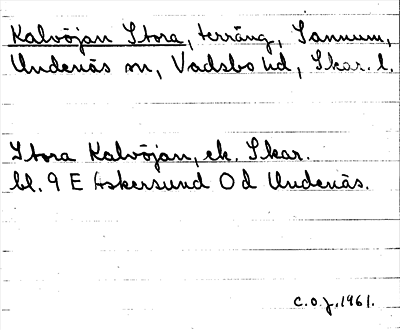 Kalvöjan Stora, terräng, Sannum,
Undenäs sn, Vadsbo hd, Skar. l.
Stora Kalvöjan, ek. Skar.
bl. 9 E Askersund 0 d Undenäs.
C.O.J. 1961.